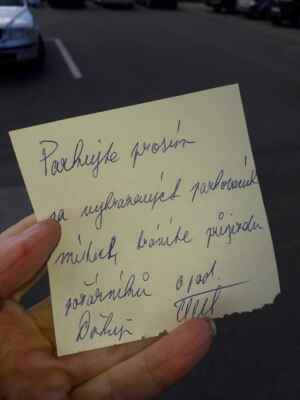 Parkujte prosím
na vyhrazených parkovacích
místech, bráníte průjezdu
požárníků apod.
Děkuji